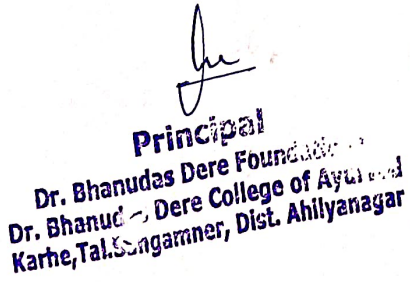 Principal
Dr. Bhanudas Dere
Dere College of
Karhe,Tal.Sangamner, Dist. Ahilyanagar